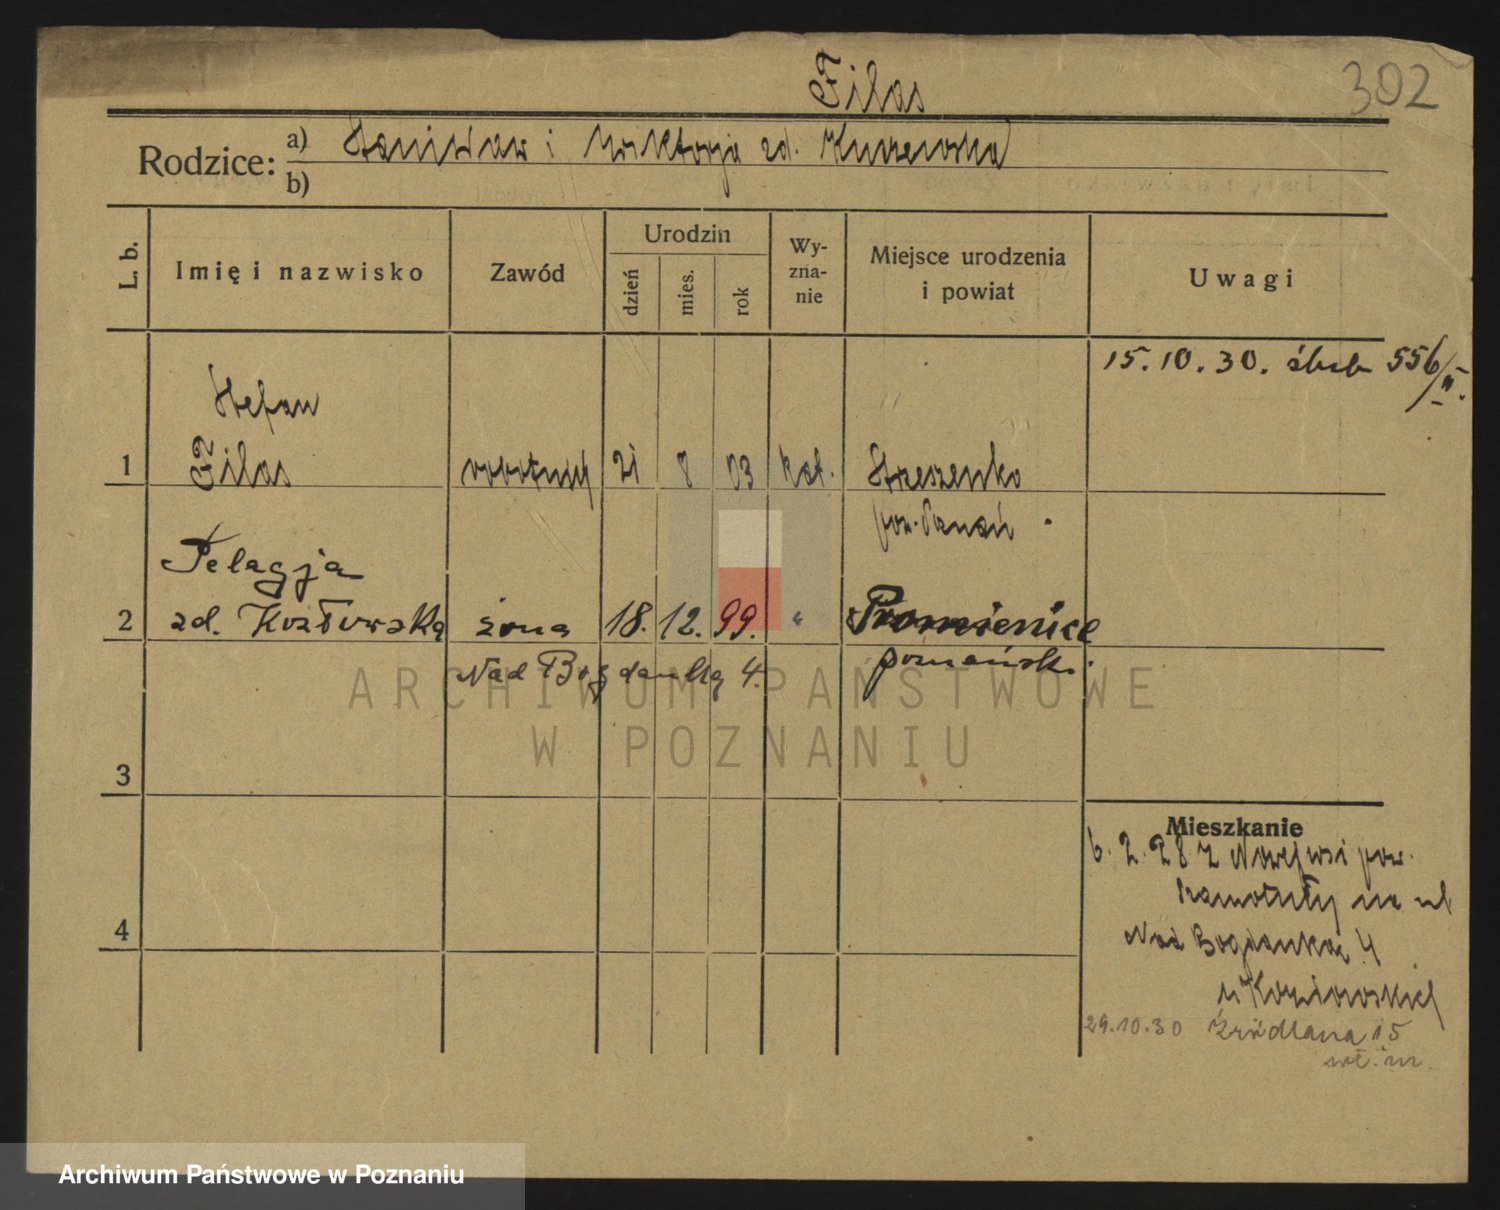 Filas
302
Rodzice: a) Stanisław i Wiktorja zd. Kuczewska
b)
L. b. Imię i nazwisko Zawód Urodzin dzień mies. rok Wy-zna-nie Miejsce urodzenia i powiat Uwagi
15.10.30. ślub 556/II.
Stefan
1 Filas robotnik 21 8 03 kat. Strzeszynko
pow. Poznań
Pelagja
2 zd. Kozłowska żona 18. 12. 99. " Promienice
Nad Bogdanką 4. poznański.
3
Mieszkanie
6.2.28 z Nowejwsi pow.
Szamotuły na ul
4 Nad Bogdanką 4
u
29.10.30 Źródlana 15
wł. m.
ARCHIWUM PAŃSTWOWE
W POZNANIU
Archiwum Państwowe w Poznaniu